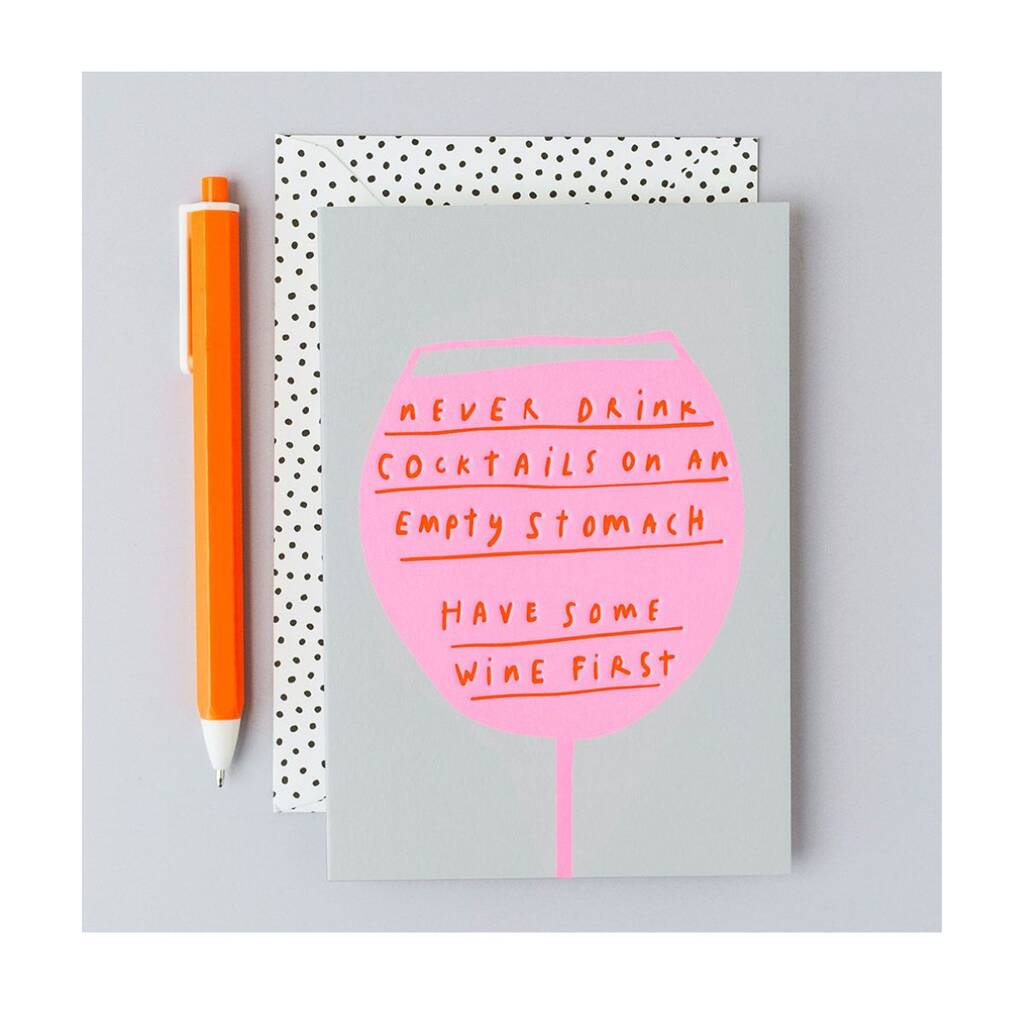 nEVER DRink
COCKTAiLS On An
EmpTy STOMACH
HAVE SOmE
WinE FiRST